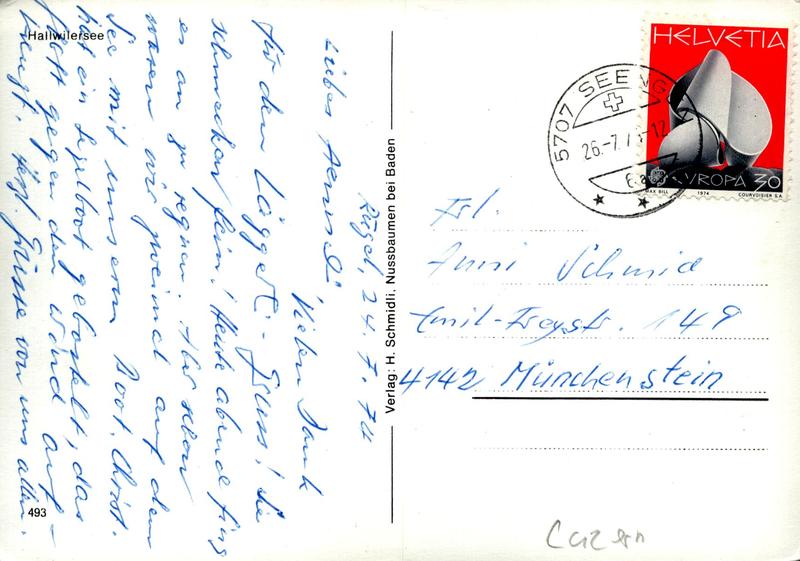 Hallwilersee
Rügel, 24.7.74
Liebes Anneli,
Vielen Dank
für den Läggerli-Gruss! Sie
schmecken fein! Heute abend fing
es an zu regnen. Aber schon
waren wir zweimal auf dem
See mit unserem Boot. Christ.
hat ein Segelboot gebastelt, das
flott gegen den Wind auf-
kreuzt. Herzl. Grüsse von uns allen.
493
Verlag: H. Schmidli, Nussbaumen bei Baden
HELVETIA
EUROPA 30
MAX BILL 1974 COURVOISIER S.A.
5707 SEENGEN
26.-7.74-12
Frl.
Anni Schmid
Emil-Freystr. 149
4142 Münchenstein